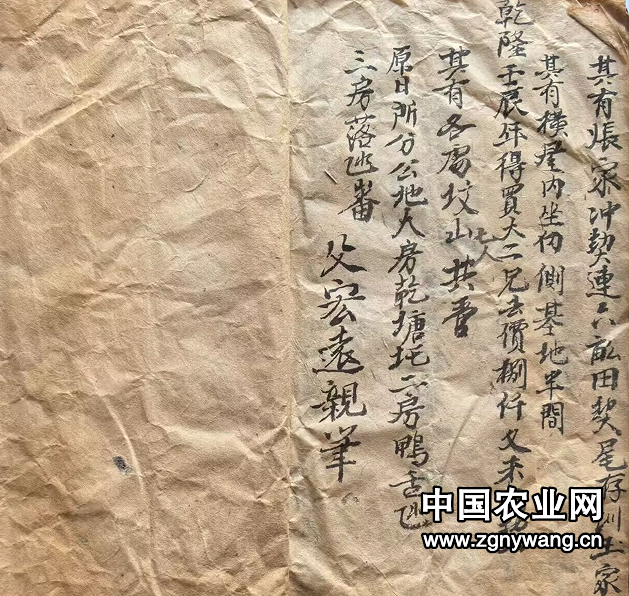 其有張家冲契連六畝田契尾存刘玉家
其有横屋内坐伤側基地半間
乾隆壬辰年得買大二兄去價捌仟文未
其有各處坟山七人共管
原日所分公地大房乾塘坵二房鴨舌坵
三房落坵番
父宏遠親筆
中国农业网
www.zgnywang.cn